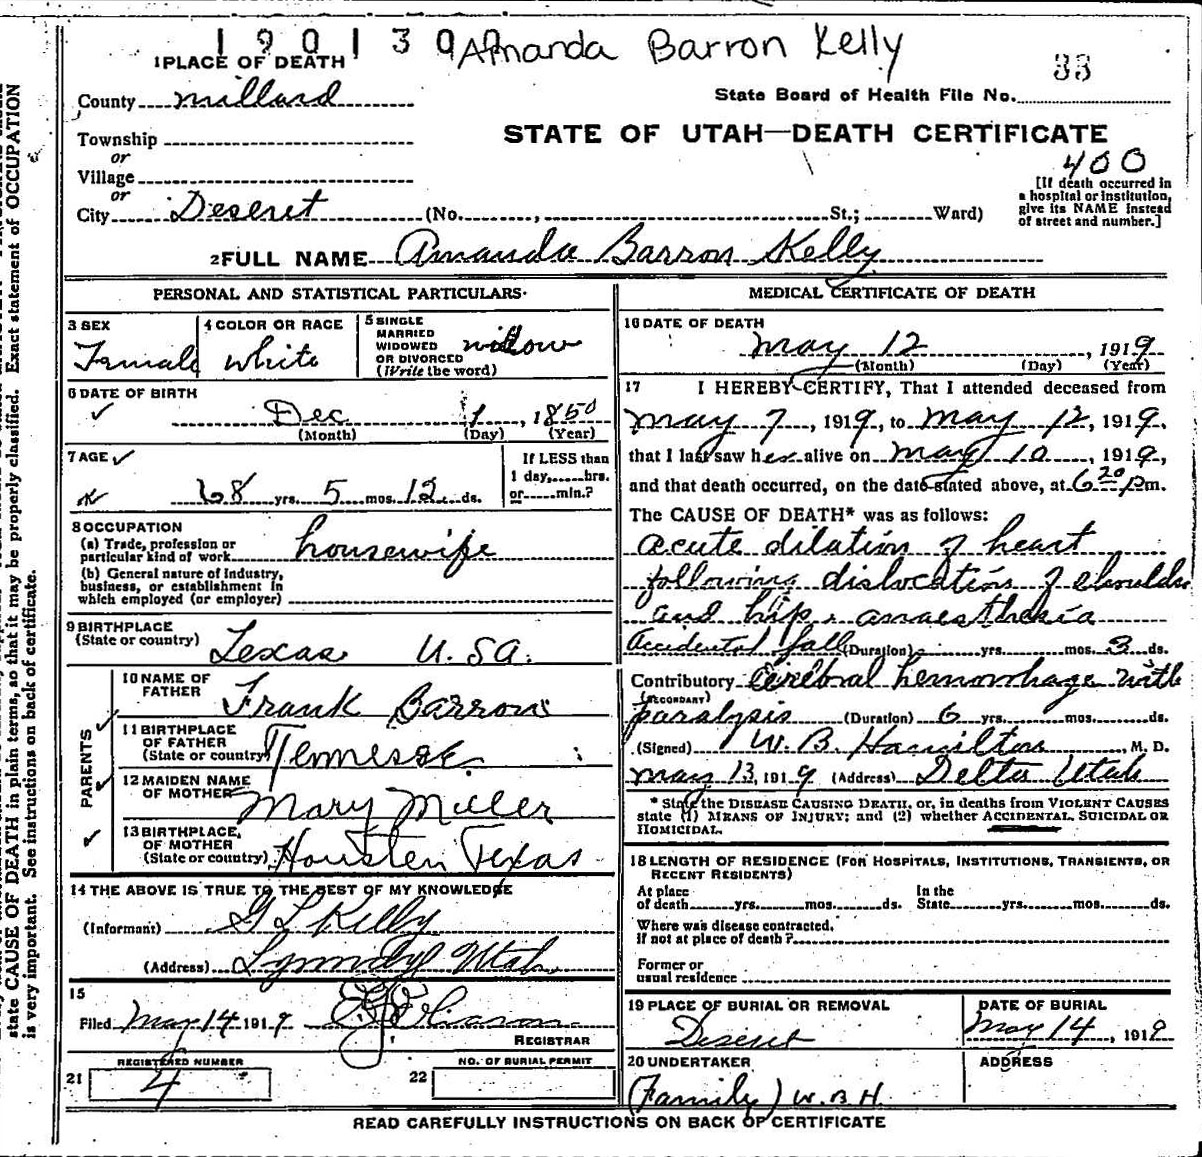 190139 Amanda Barron Kelly
33
1 PLACE OF DEATH
County Millard
State Board of Health File No.
STATE OF UTAH—DEATH CERTIFICATE
Township
or
Village
or
City Deseret (No. , St.; Ward)
400
[If death occurred in
a hospital or institution,
give its NAME instead
of street and number.]
2 FULL NAME Amanda Barron Kelly
PERSONAL AND STATISTICAL PARTICULARS
3 SEX
Female
4 COLOR OR RACE
White
5 SINGLE
MARRIED
WIDOWED
OR DIVORCED
(Write the word)
widow
6 DATE OF BIRTH
Dec 1, 1850
(Month) (Day) (Year)
7 AGE
68 yrs. 5 mos. 12 ds.
If LESS than
1 day, hrs.
or min.?
8 OCCUPATION
(a) Trade, profession or
particular kind of work housewife
(b) General nature of industry,
business, or establishment in
which employed (or employer)
9 BIRTHPLACE
(State or country) Texas U.SA.
PARENTS
10 NAME OF
FATHER Frank Barron
11 BIRTHPLACE
OF FATHER
(State or country) Tennesse
12 MAIDEN NAME
OF MOTHER Mary Miller
13 BIRTHPLACE
OF MOTHER
(State or country) Housten Texas
14 THE ABOVE IS TRUE TO THE BEST OF MY KNOWLEDGE
(Informant) G L Kelly
(Address) Lynndyl Utah
15
Filed May 14 1919
REGISTRAR
REGISTERED NUMBER
21 4
NO. OF BURIAL PERMIT
22
MEDICAL CERTIFICATE OF DEATH
16 DATE OF DEATH
May 12, 1919
(Month) (Day) (Year)
17 I HEREBY CERTIFY, That I attended deceased from
May 7, 1919, to May 12, 1919,
that I last saw her alive on May 10, 1919,
and that death occurred, on the date stated above, at 6 20 p m.
The CAUSE OF DEATH* was as follows:
acute dilation of heart
following dislocation of shoulder
and hip & anaesthesia
Accidental fall (Duration) yrs. mos. 3 ds.
Contributory Cerebral hemorrhage with
(SECONDARY)
paralysis (Duration) 6 yrs. mos. ds.
(Signed) W. B. Hamilton, M. D.
May 13, 1919 (Address) Delta Utah
* State the DISEASE CAUSING DEATH, or, in deaths from VIOLENT CAUSES
state (1) MEANS OF INJURY; and (2) whether ACCIDENTAL, SUICIDAL OR
HOMICIDAL.
18 LENGTH OF RESIDENCE (FOR HOSPITALS, INSTITUTIONS, TRANSIENTS, OR
RECENT RESIDENTS)
At place
of death yrs. mos. ds.
In the
State yrs. mos. ds.
Where was disease contracted,
if not at place of death?
Former or
usual residence
19 PLACE OF BURIAL OR REMOVAL
Deseret
DATE OF BURIAL
May 14, 1919
20 UNDERTAKER
(Family) W.B.H.
ADDRESS
READ CAREFULLY INSTRUCTIONS ON BACK OF CERTIFICATE
state CAUSE OF DEATH in plain terms, so that it may be properly classified. Exact statement of OCCUPATION
is very important. See instructions on back of certificate.